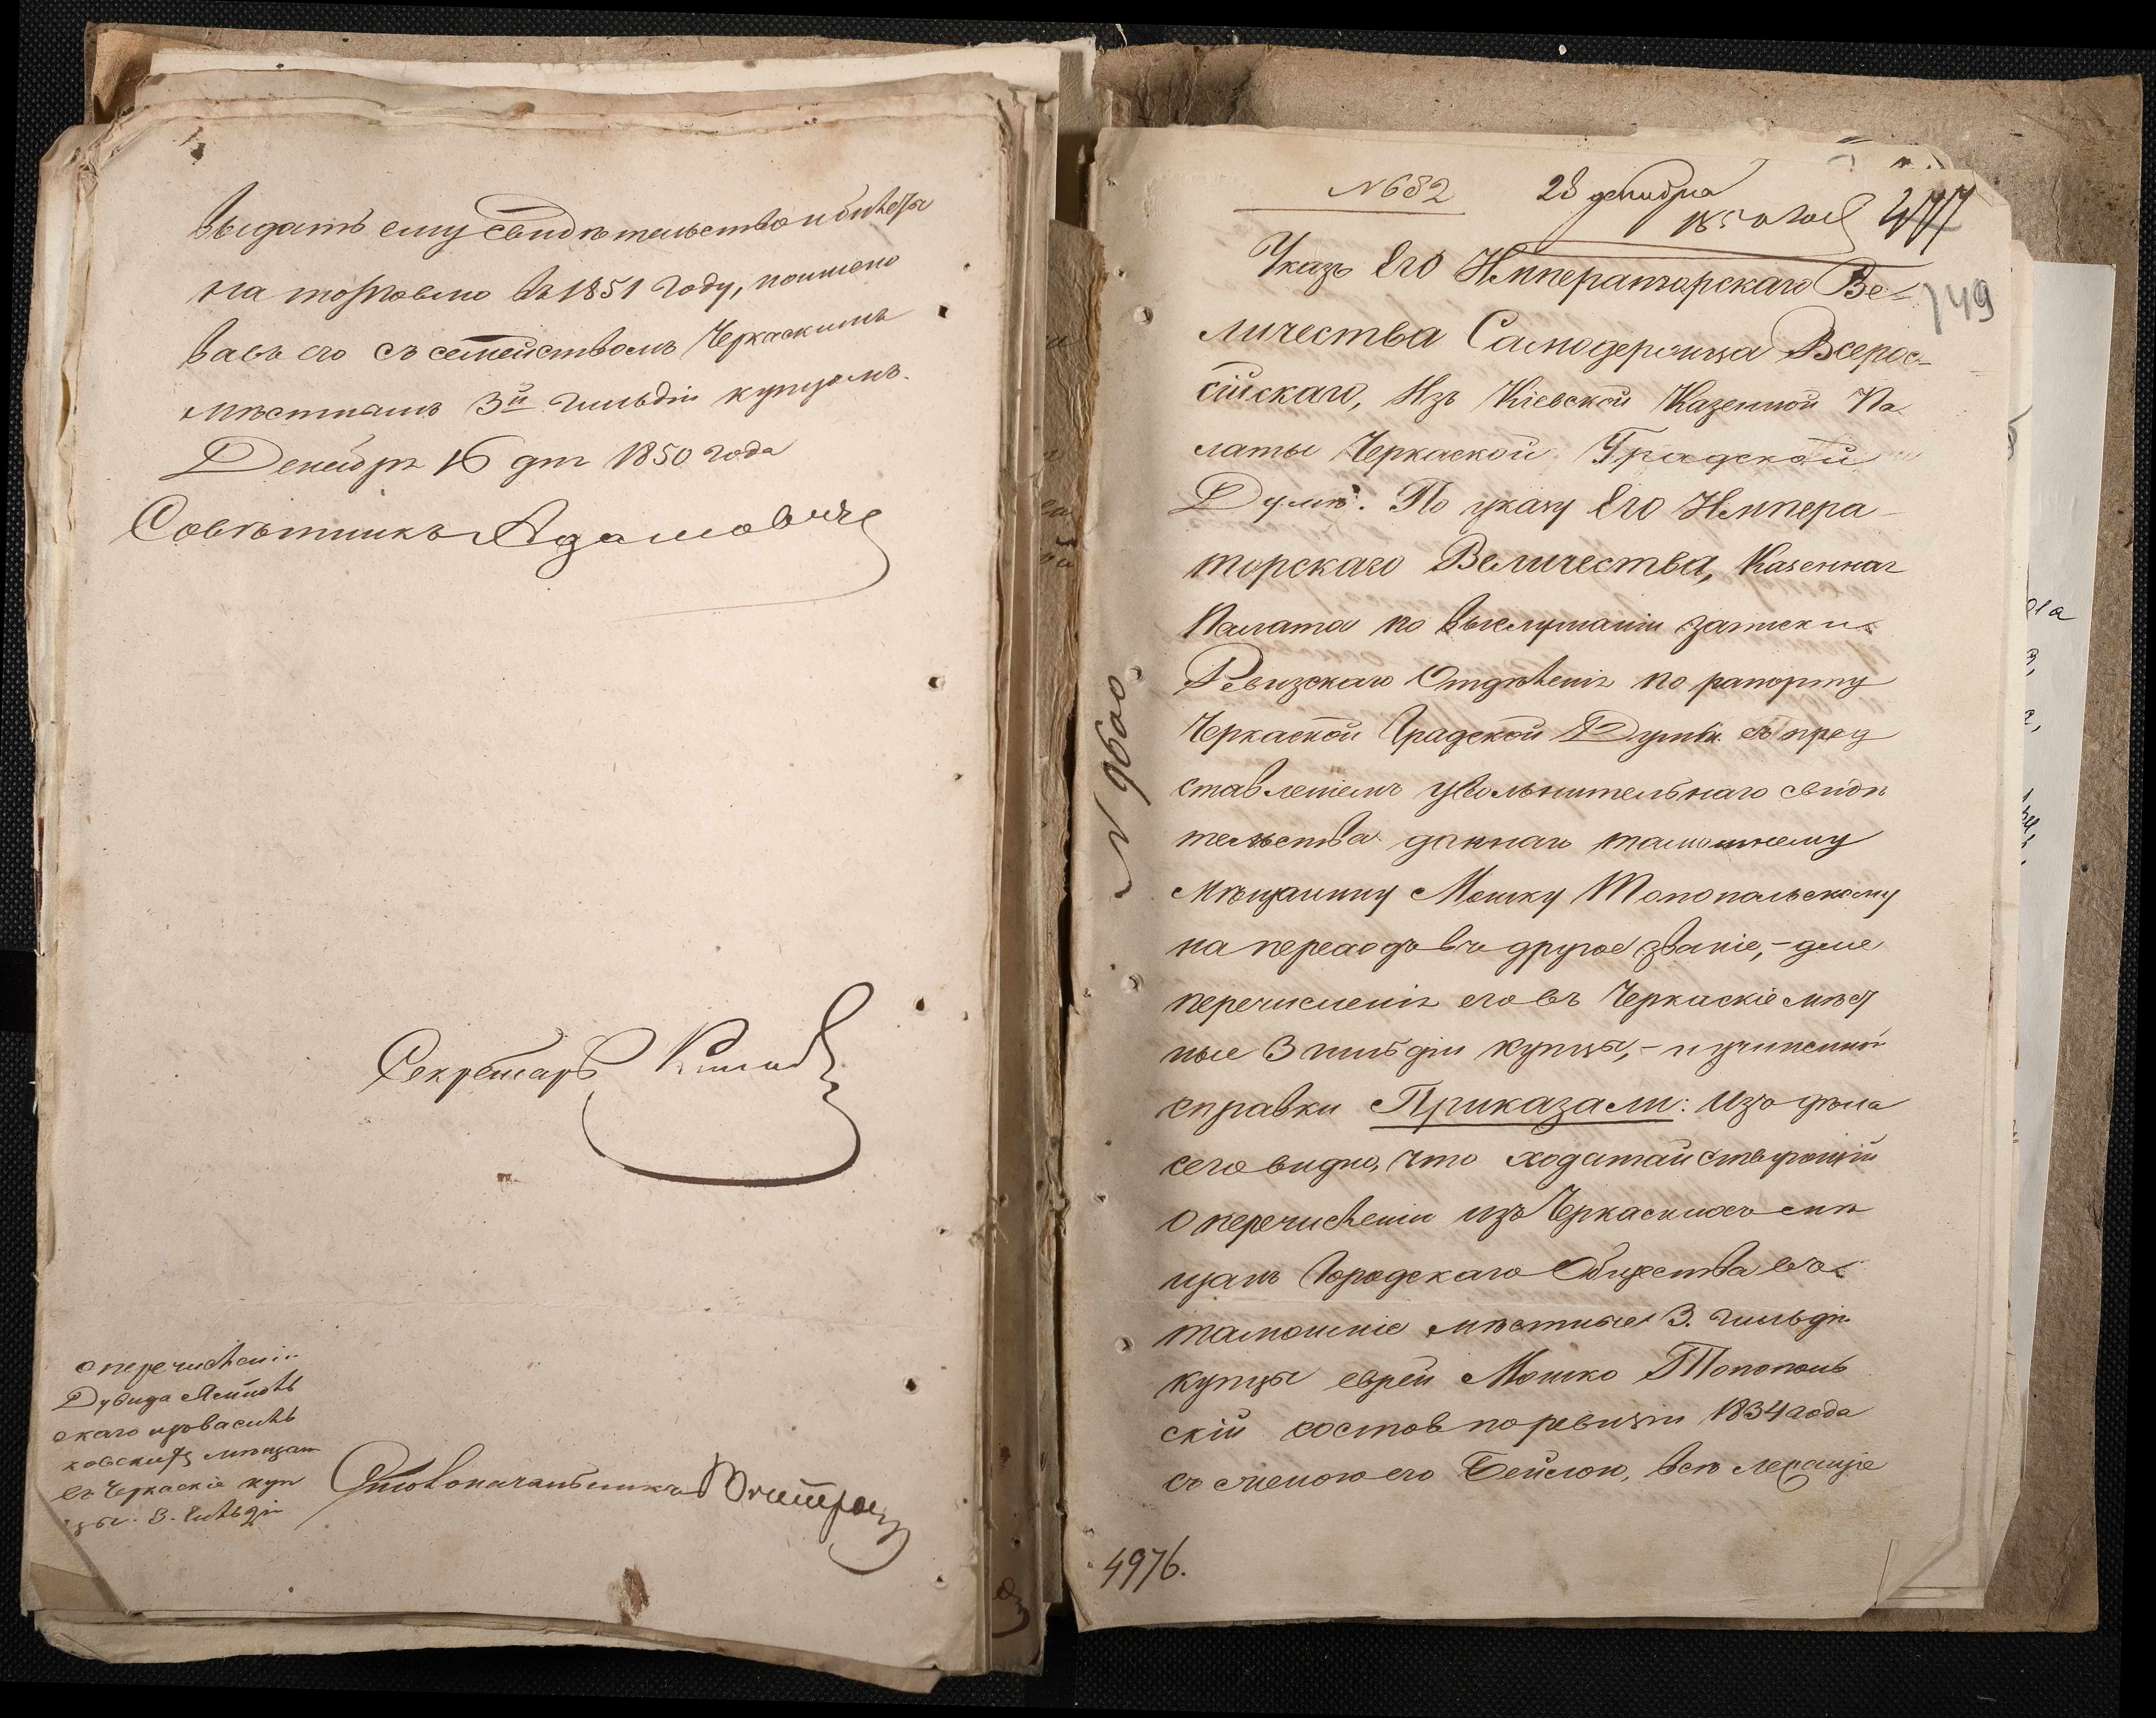 Выдать ему свидѣтельство и билета
на торговлю въ 1851 году, поимено
вавъ его съ семействомъ Черкаскимъ
мѣстнымъ 3й гильдіи купцомъ.
Декабря 16 дня 1850 года
Совѣтникъ Адамовичъ
Секретарь
о перечисленіи
Дувида
скаго изъ Василь
ковскихъ мѣщан
въ Черкаскіе куп
цы 3. гильдіи
Столоначальникъ
№682 28 декабря
1850 года
149
Указъ Его Императорскаго Ве-
личества Самодержца Всерос-
сійскаго, Изъ Кіевской Казенной Па
латы Черкаской Градской
Думѣ. По указу Его Импера-
торскаго Величества, Казенная
Палата по выслушаніи записки
Ревизскаго Отдѣленія по рапорту
Черкаской Градской Думы съ пред
ставленіемъ увольнительнаго свидѣ
тельства даннаго тамошнему
мѣщанину Мошку Топопольскому
на переходъ въ другое званіе,- для
перечисленія его въ Черкаскіе мѣст
ные 3 гильдіи купцы,- и учиненной
справки Приказали: Изъ дѣла
сего видно, что ходатайствующій
о перечисленіи изъ Черкаскихъ мѣ
щанъ Городскаго Общества въ
тамошніе мѣстные 3. гильдіи
купцы еврей Мошко Топополь
скій состоя по ревизіи 1834 года
съ женою его Бейлою, всѣ лежащіе
№ 9600
4976.